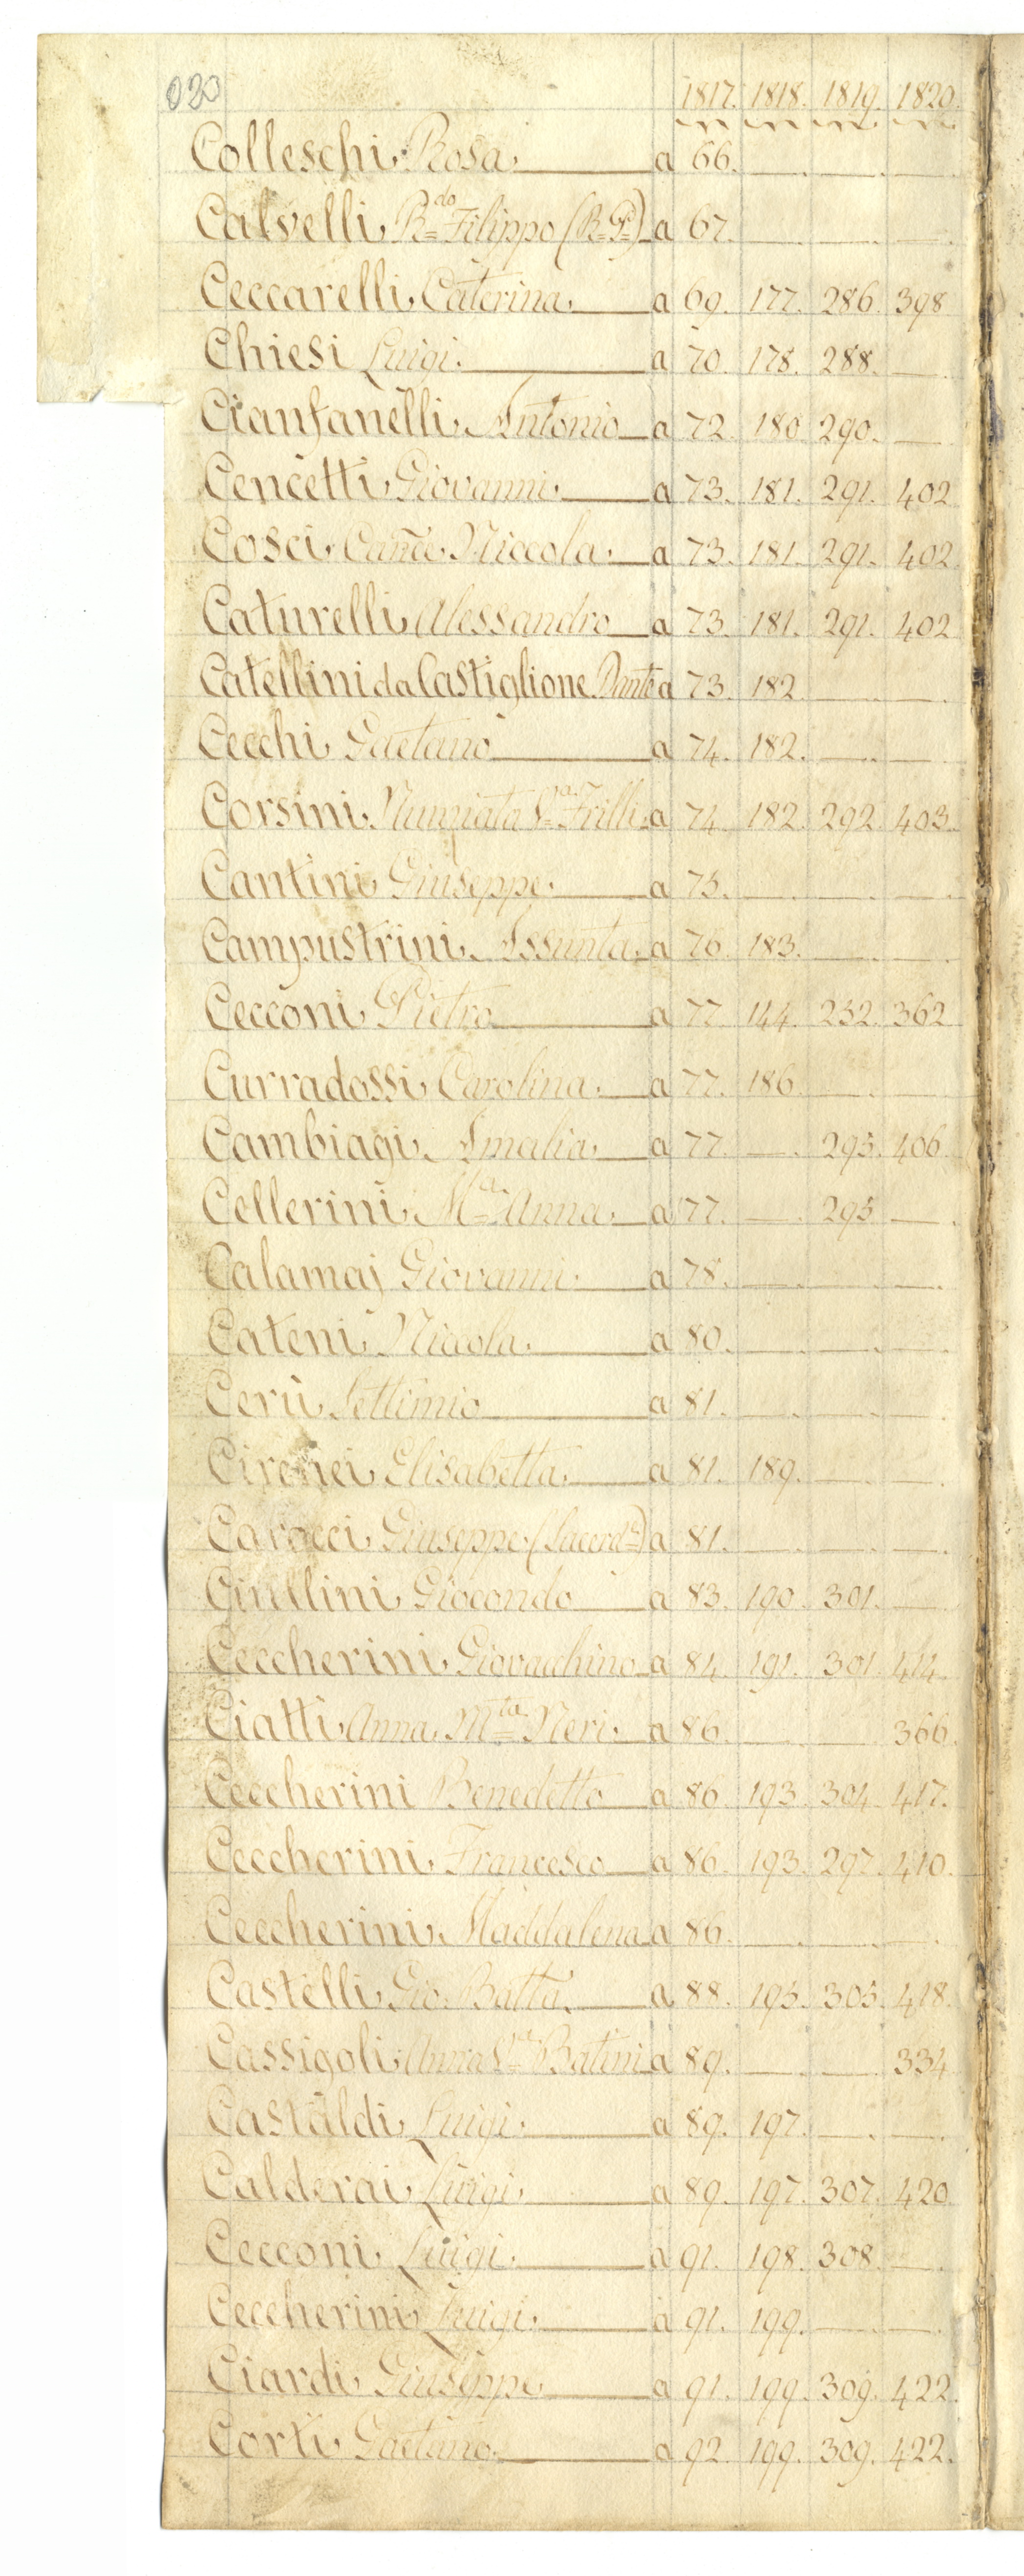 020
1817. 1818. 1819. 1820.
Colleschi Rosa a 66.
Calvelli R.do Filippo (R. P.) a 67.
Ceccarelli Caterina a 69. 177. 286. 398
Chiesi Luigi a 70. 178. 288.
Cianfanelli Antonio a 72. 180 290.
Cencetti Giovanni a 73. 181. 291. 402
Cosci Cano Niccola a 73. 181. 291. 402.
Caturelli Alessandro a 73. 181. 291. 402
Catellini da Castiglione Dante a 73. 182
Cecchi Gaetano a 74. 182.
Corsini Nunziata V.a Frilli a 74. 182. 292. 403.
Cantini Giuseppe a 75.
Campustrini Assunta a 76. 183.
Cecconi Pietro a 77. 144. 252. 362
Curradossi Carolina a 77. 186.
Cambiagi Amalia a 77. 295. 406.
Cellerini M.a Anna a 77. 295
Calamaj Giovanni a 78.
Cateni Niccola a 80.
Cerù Settimio a 81.
Cirenei Elisabetta a 81. 189.
Caracci Giuseppe (Sacerd.e) a 81.
Giullini Giocondo a 83. 190. 301.
Ceccherini Giovacchino a 84. 191. 301. 414
Ciatti Anna M.ta Neri a 86. 366.
Ceccherini Benedetto a 86. 193. 304. 417.
Ceccherini Francesco a 86. 193. 297. 410.
Ceccherini Maddalena a 86.
Castelli Gio. Batta. a 88. 195. 305. 418.
Cassigoli Anna V.a Batini a 89. 334
Castaldi Luigi a 89. 197.
Calderai Luigi a 89. 197. 307. 420
Cecconi Luigi a 91. 198. 308.
Ceccherini Luigi a 91. 199.
Ciardi Giuseppe a 91. 199. 309. 422.
Corti Gaetano a 92. 199. 309. 422.